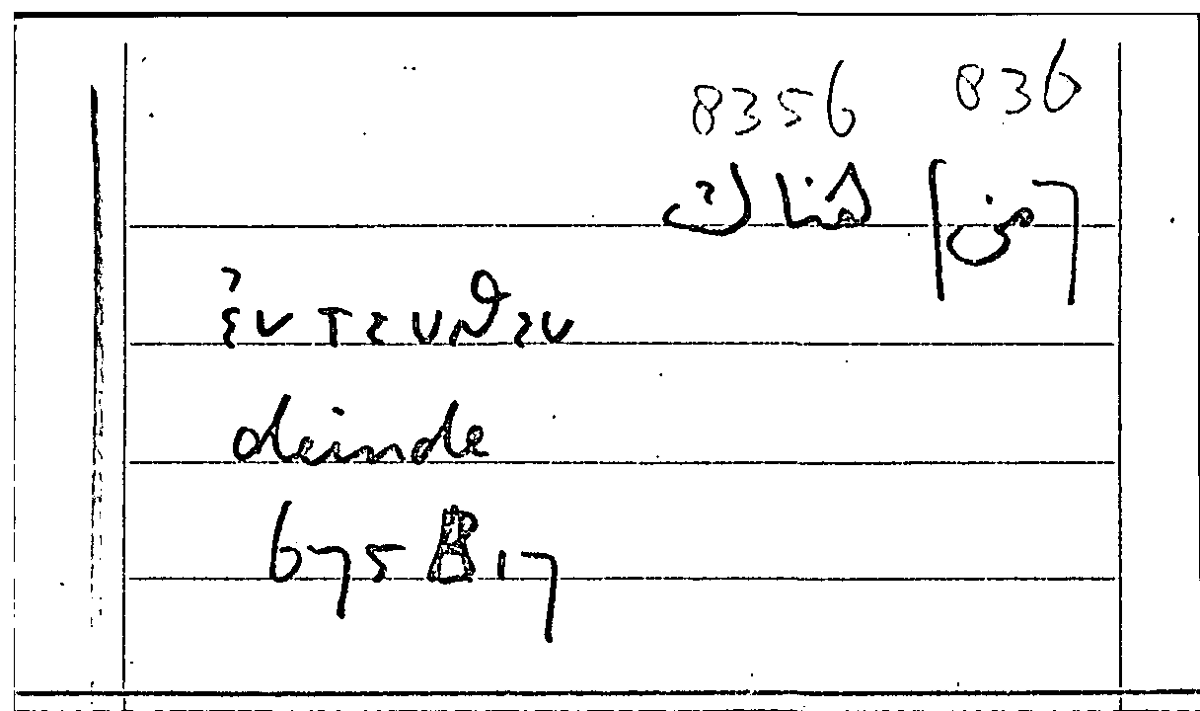 8356 836
[من] هناك
ἐντευθεν
deinde
675 B 17